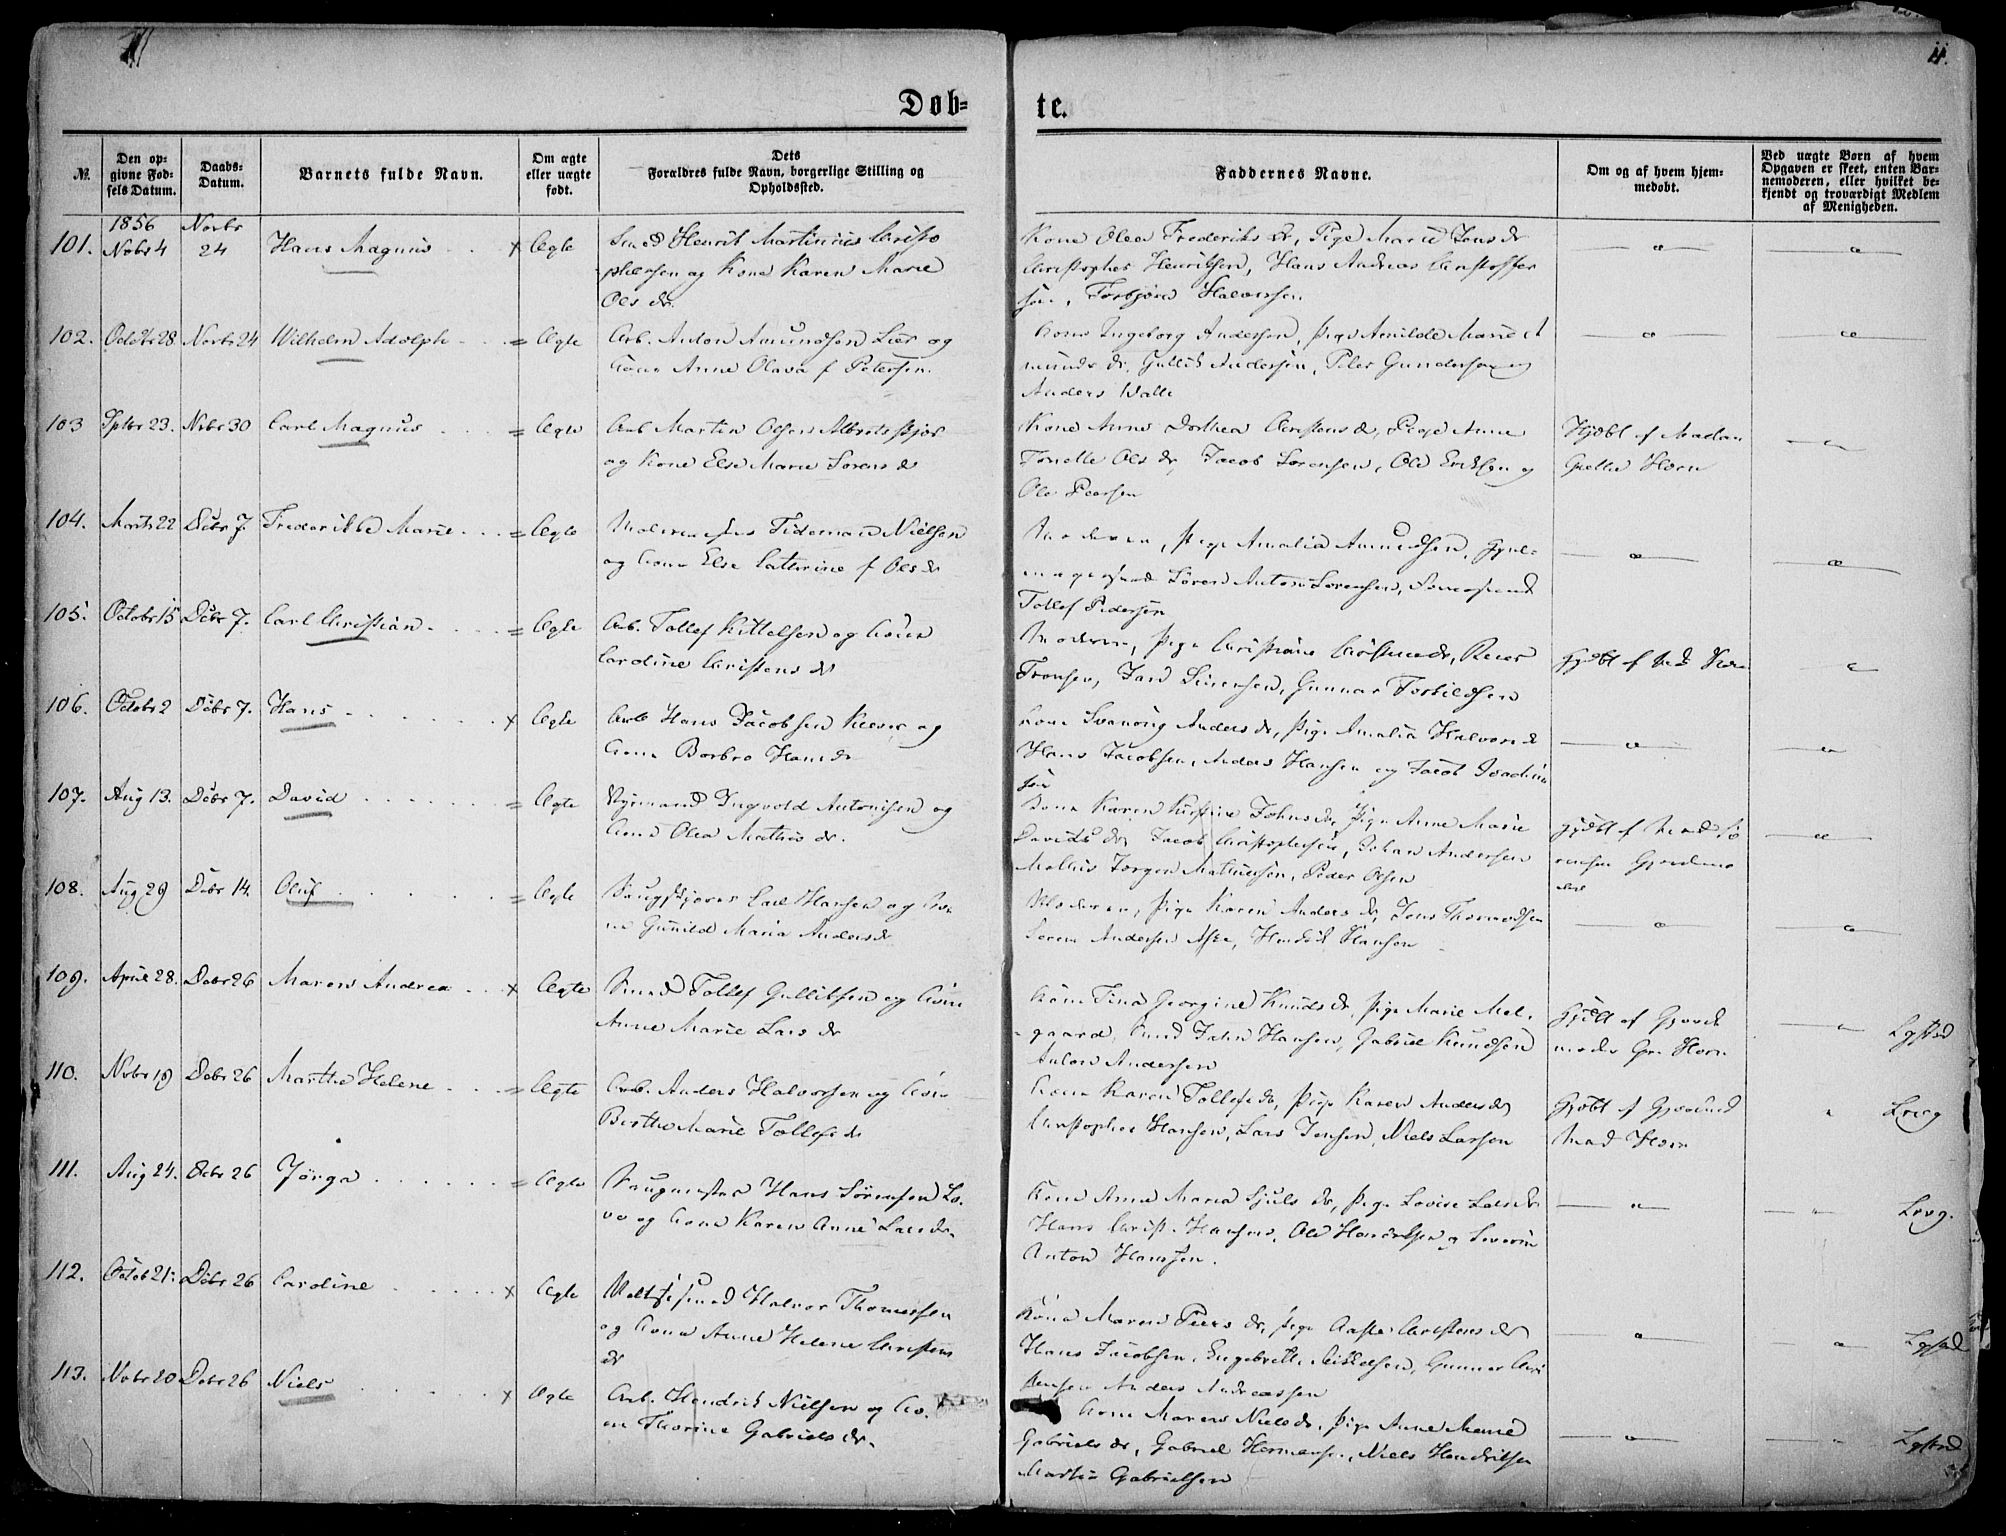 11.
Døb-
te.
№.
Den op-
givne Fød-
sels Datum.
Daabs-
Datum.
Barnets fulde Navn.
Om ægte
eller uægte
født.
Dets
Forældres fulde Navn, borgerlige Stilling og
Opholdssted.
Faddernes Navne.
Om og af hvem hjem-
medøbt.
Ved uægte Børn af hvem
Opgaven er skeet, enten Bar-
nemoderen, eller hvilket be-
kjendt og troværdigt Medlem
af Menigheden.
1856
101. Nobr 4 Novbr 24 Hans Magnus x Ægte Smed Henrik Martinius Christo
phersen og Kone Karen Marie
Ols dr.
Kone Olea Frederiks dr, Pige Marie Jens dr
Christopher Henriksen, Hans Andreas Christoffer
sen, Torbjørn Halvorsen
102. Octbr 28 Novbr 24 Wilhelm Adolph = Ægte Arb. Anton Amundsen Lier og
Kone Anne Olava f Petersen.
Kone Ingeborg Andersen, Pige Marie A
munds dr, Gullik Andersen, Peter Gundersen og
Anders Walle
103 Sptbr 23. Nobr 30 Carl Magnus = Ægte Arb Martin Olsen
og Kone Else Marie Sørens dr
Kone Anne Dorthea Christens dr, Pige Anne
Tonette Ols dr, Jacob Sørensen, Ole Eriksen og
Ole Peersen
Hjdbt af Madam
Horn
104. Marts 22 Dcbr 7. Frederikke Marie = Ægte Tidemand Nielsen
og Kone Else Cathrine f Ols dr
Moderen, Pige Amalia Amundsen,
Søren Anton Sørensen,
Tollef Pedersen
105. Octobr 15 Dcbr 7. Carl Christian = Ægte Arb. Tollef Kittelsen og Kone
Caroline Christens dr
Moderen, Pige Christiane dr,
Tronsen, Gunnar Torkildsen
Hjdbt af Mad
106. Octobr 2 Dcbr 7. Hans x Ægte Arb Hans Jacobsen og
Kone Barbro Hans dr
Kone Anders dr, Pige Amalia Halvors dr
Hans Jacobsen, Anders Hansen og Jacob
sen
107. Aug 13. Dcbr 7. David = Ægte Ingvold Antonisen og
Kone Olea Mathis dr.
Kone Karen Kirstine Johns dr, Pige Anne Marie
Davids dr, Jacob Christophersen, Johan Andersen
Jørgen Mathiesen, Peder Olsen
108. Aug 29 Dcbr 14. Oluf = Ægte Carl Hansen og Ko
ne Gunild Maria Anders dr
Moderen, Pige Karen Anders dr, Jens Thormodsen
Søren Andersen, Hendrik Hansen
109. April 28. Dcbr 26 Maren Andrea x Ægte Smed Tollef Gulliksen og Kone
Anne Marie Lars dr
Kone Tina Georgine Knuds dr, Pige Marie Mel-
gaard, Smed John Hansen, Gabriel Knudsen
Anton Andersen
Hjdbt af Gjord
moder Gr. Horn
110. Nobr 19 Dcbr 26 Marthe Helene = Ægte Arb. Anders Halvorsen og Kone
Berthe Marie Tollefs dr
Kone Karen Tollefs dr, Pige Karen Anders dr
Christopher Hansen, Lars Jensen, Niels Larsen
Hjdbt af
Mad Horn
111. Aug 24. Dcbr 26 Jørga = Ægte Saugmester Hans Sørensen Lo.
ve og Kone Karen Anne Lars dr.
Kone Anne Maria Sjuls dr, Pige Lovise Lars dr
Hans Christ. Hansen, Ole Hendriksen og Severin
Anton Hansen.
112. Octob 21. Dcbr 26 Caroline x Ægte Halvor Thomassen
og Kone Anne Helene Christens
dr
Kone Maren Peers dr, Pige Aaste Christens dr
Hans Jacobsen, Engebrett Mikkelsen, Gunner Chri
stensen Anders Andreassen
113. Nobr 20 Dcbr 26 Niels x Ægte Arb. Hendrik Nielsen og Ko.
ne Thorine Gabriels dr.
Kone Maren Niels dr, Pige Anne Marie
Gabriels dr, Gabriel Hermansen, Niels Hendriksen
Martin Gabrielsen